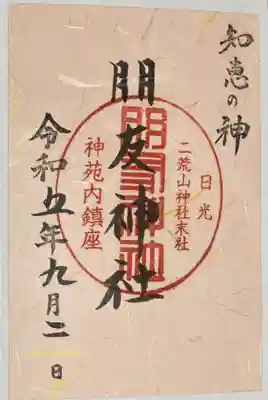 知恵の神
日光
二荒山神社末社
朋友神社
神苑内鎮座
令和五年九月二日